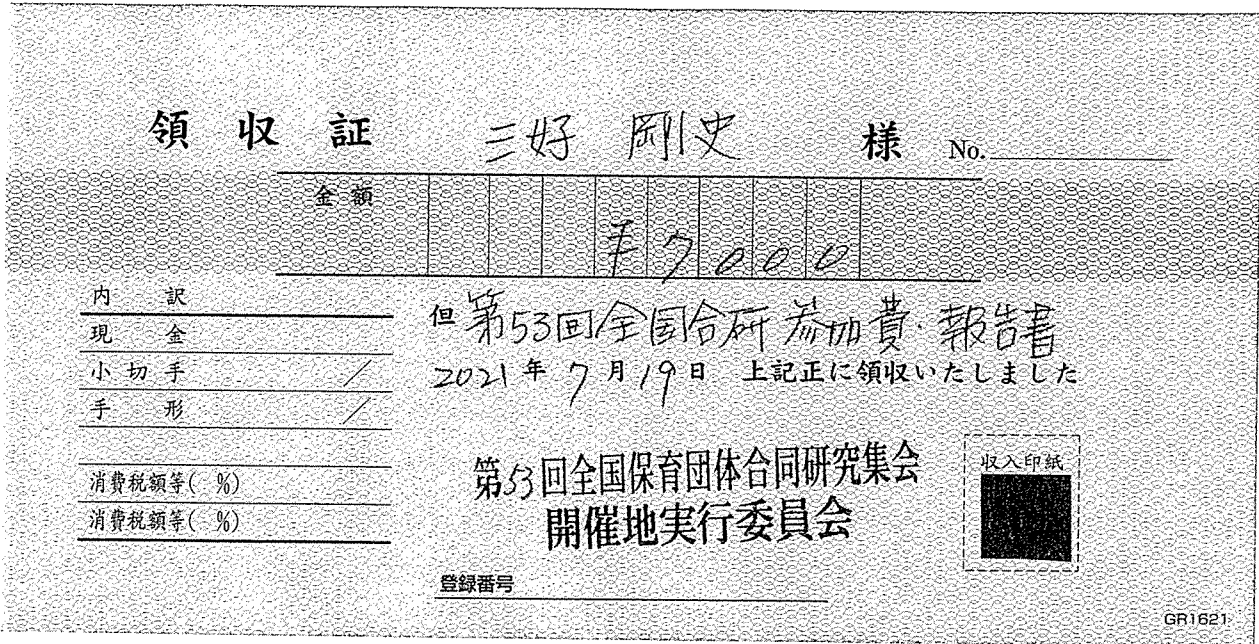 領収証 三好 剛史 様 No.
金額 ¥7000
内訳
現金
小切手 /
手形 /
消費税額等( %)
消費税額等( %)
但 第53回全国合研 参加費・報告書
2021年7月19日 上記正に領収いたしました
第53回全国保育団体合同研究集会
開催地実行委員会
収入印紙
登録番号
GR1621